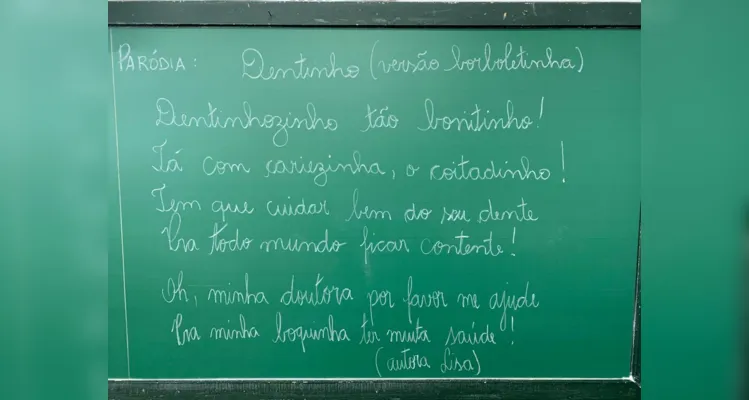 PARÓDIA: Dentinho (versão borboletinha)
Dentinhozinho tão bonitinho!
Tá com cariezinha, o coitadinho!
Tem que cuidar bem do seu dente
Pra todo mundo ficar contente!
Oh, minha doutora por favor me ajude
Pra minha boquinha ter muita saúde!
(autora Lisa)